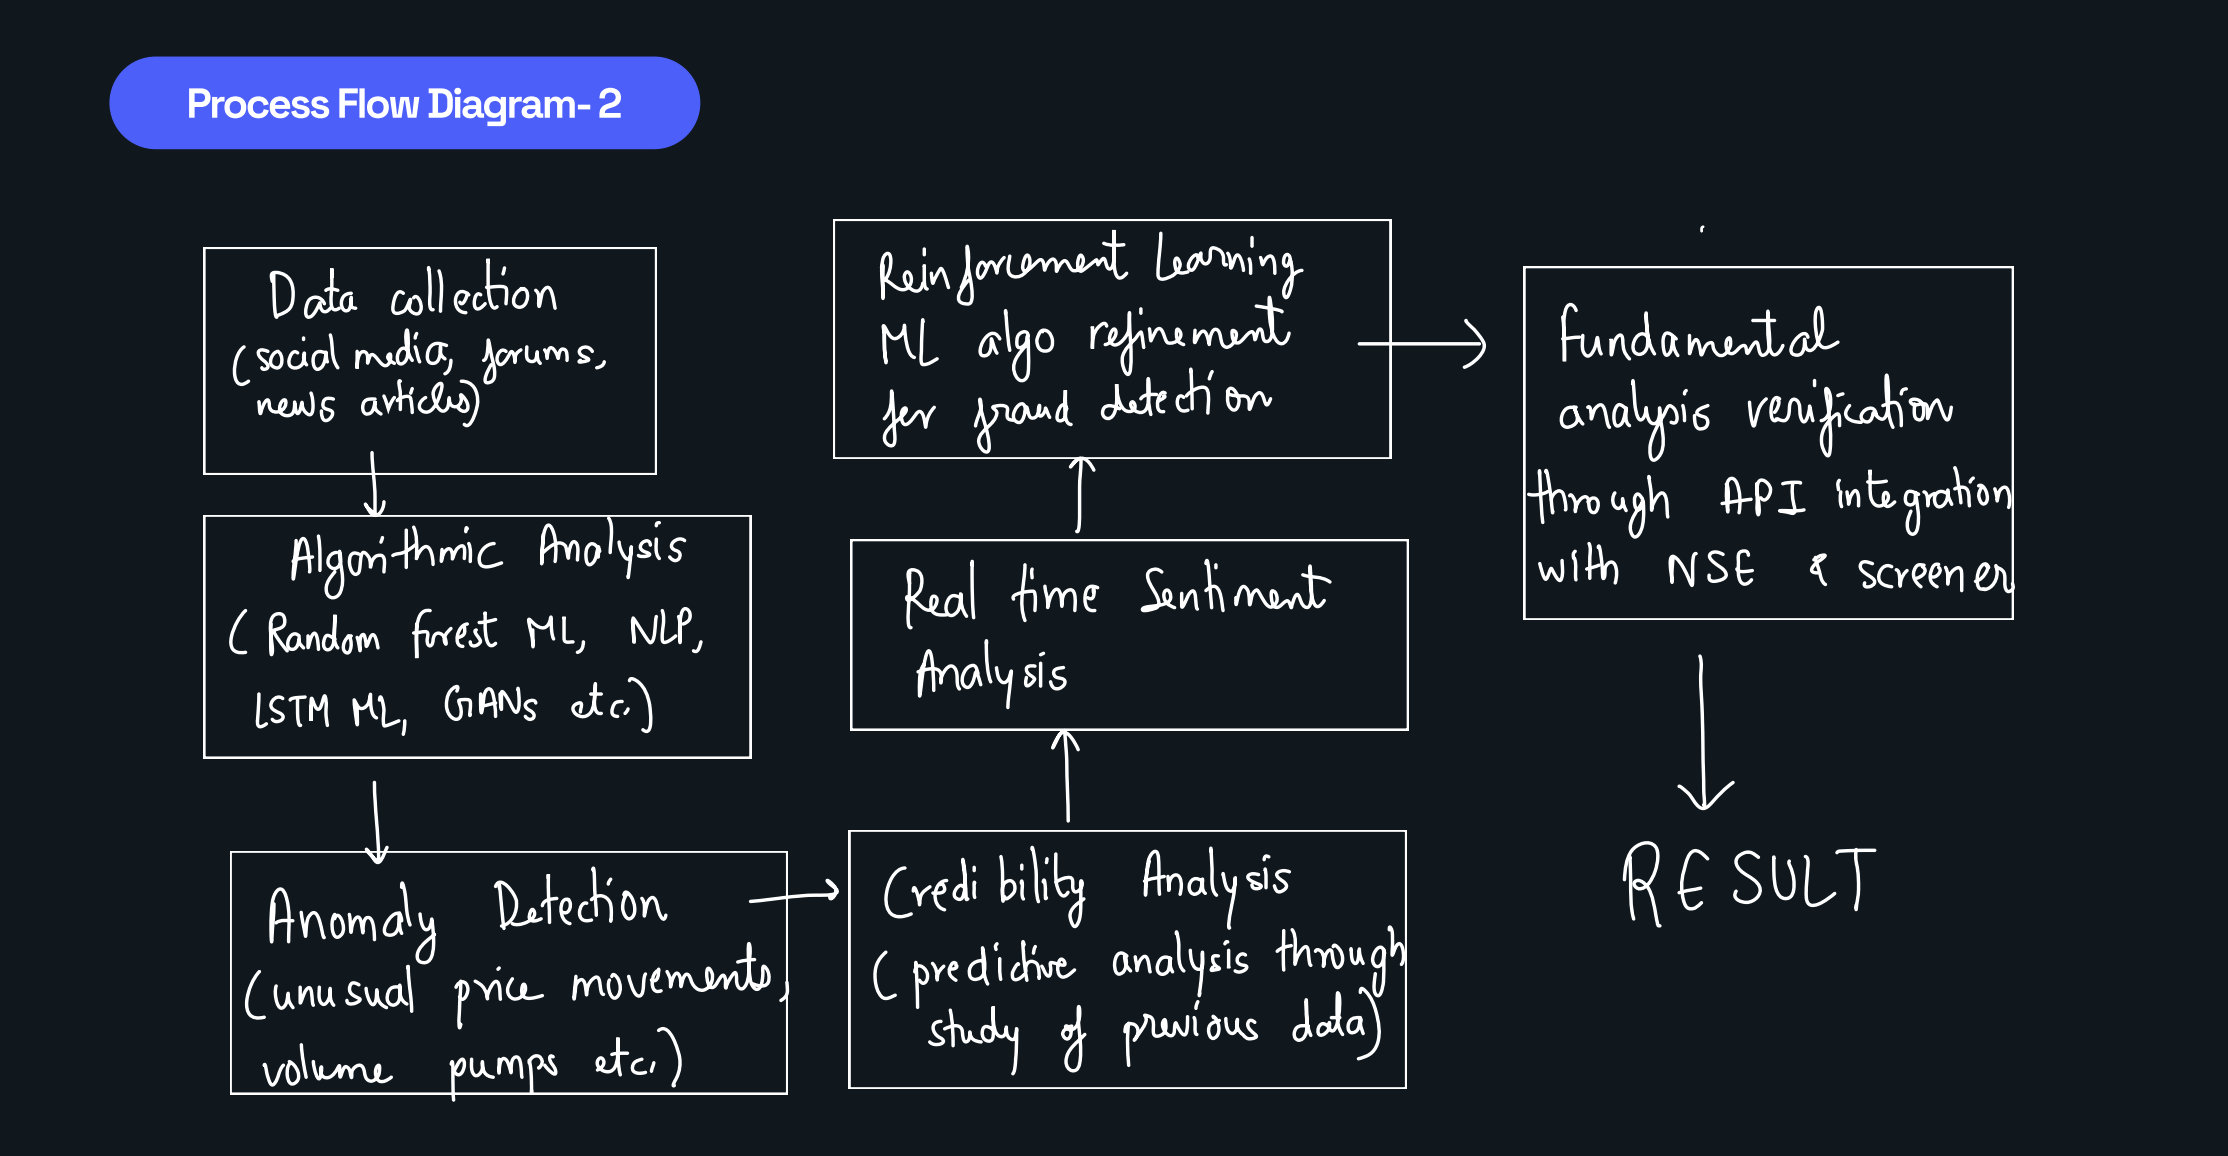 Process Flow Diagram- 2
Data collection
(social media, forums,
news articles)
Algorithmic Analysis
(Random forest ML, NLP,
LSTM ML, GANs etc.)
Anomaly Detection
(unusual price movements,
volume pumps etc.)
Credibility Analysis
(predictive analysis through
study of previous data)
Real time Sentiment
Analysis
Reinforcement Learning
ML algo refinement
for fraud detection
Fundamental
analysis verification
through API integration
with NSE & screener
RESULT